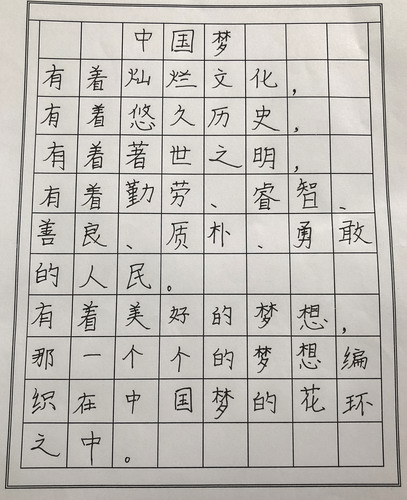 中国梦
有着灿烂文化，
有着悠久历史，
有着著世之明，
有着勤劳、睿智、
善良、质朴、勇敢
的人民。
有着美好的梦想，
那一个个的梦想编
织在中国梦的花环
之中。